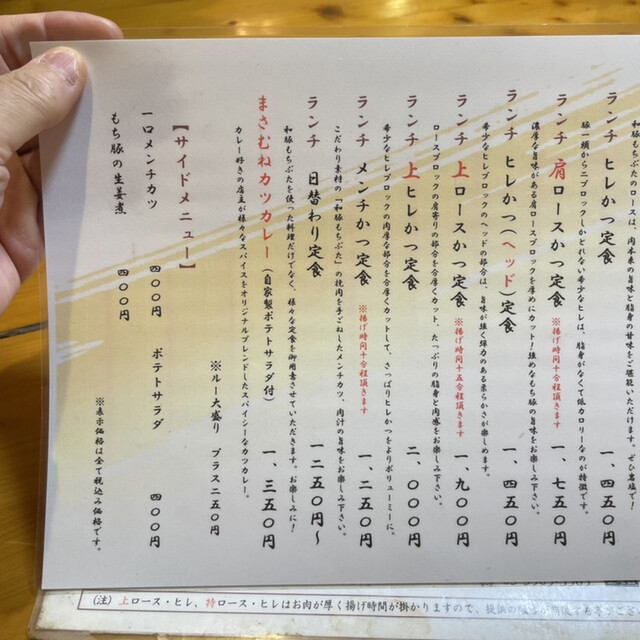 和豚もちぶたのロースは、肉本来の旨味と脂身の甘味をご堪能いただけます。ぜひ岩塩で！
ランチ ヒレかつ定食 一、四五〇円
豚一頭から二ブロックしかとれない希少なヒレは、脂身がなくて低カロリーなのが特徴です。
ランチ 肩ロースかつ定食 ※揚げ時間十分程頂きます 一、七五〇円
濃厚な旨味がある肩ロースブロックを厚めにカット！強めなもち豚の旨味をお楽しみ下さい。
ランチ ヒレかつ（ヘッド）定食 一、四五〇円
希少なヒレブロックのヘッドの部分は、旨味が強く弾力のある柔らかさが楽しめます。
ランチ 上ロースかつ定食 ※揚げ時間十五分程頂きます 一、九〇〇円
ロースブロックの肩寄りの部分を分厚くカット、たっぷりの脂身と肉感をお楽しみ下さい。
ランチ 上ヒレかつ定食 二、〇〇〇円
希少なヒレブロックの肉厚な部分を分厚くカットして、さっぱりヒレかつをよりボリューミーに。
ランチ メンチかつ定食 ※揚げ時間十分程頂きます 一、二五〇円
こだわり素材の「和豚もちぶた」の挽肉を手ごねしたメンチカツ、肉汁の旨味をお楽しみ下さい。
ランチ 日替わり定食 一二五〇円～
和豚もちぶたを使った料理だけでなく、様々な定食を御用意させていただきます。お楽しみに！
まさむねカツカレー（自家製ポテトサラダ付） 一、三五〇円
カレー好きの店主が様々なスパイスをオリジナルブレンドしたスパイシーなカツカレー。
※ルー大盛り プラス二五〇円
【サイドメニュー】
一口メンチカツ 四〇〇円 ポテトサラダ 四〇〇円
もち豚の生姜煮 四〇〇円
※表示価格は全て税込み価格です。
（注）上ロース・ヒレ、特ロース・ヒレはお肉が厚く揚げ時間が掛かりますので、